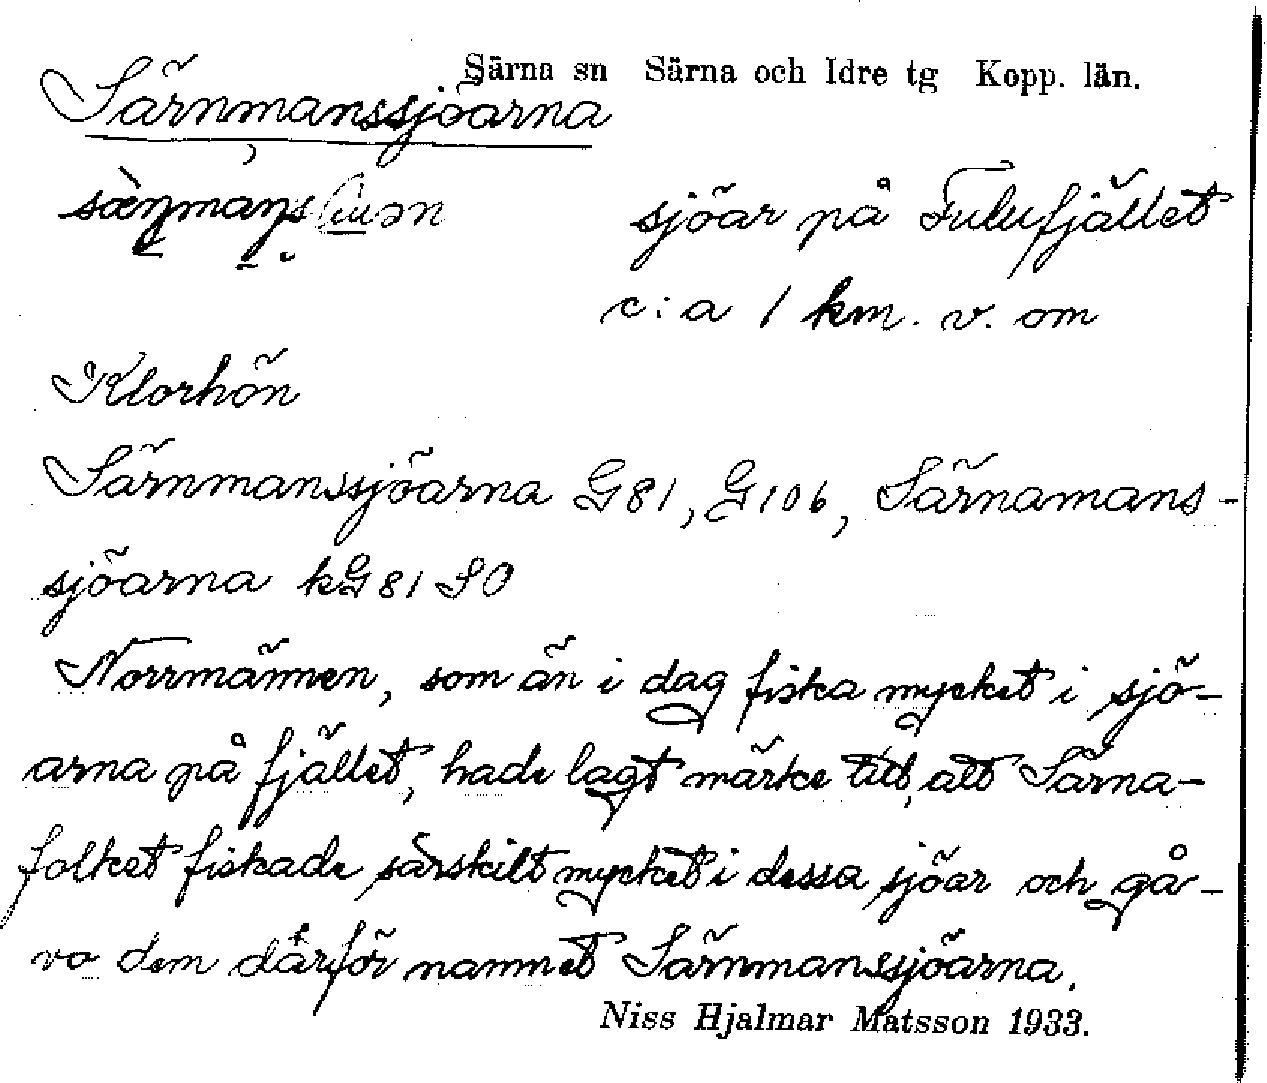 Särna sn Särna och Idre tg Kopp. län.
Särnmanssjöarna
sjöar på Fulufjället
c:a 1 km. v. om
Klorhön
Särnmanssjöarna G81, G106, Särnamans-
sjöarna kG81 SO
Norrmännen, som än i dag fiska mycket i sjö-
arna på fjället, hade lagt märke till, att Särna-
folket fiskade särskilt mycket i dessa sjöar och gå-
vo dem därför namnet Särnmanssjöarna.
Niss Hjalmar Matsson 1933.